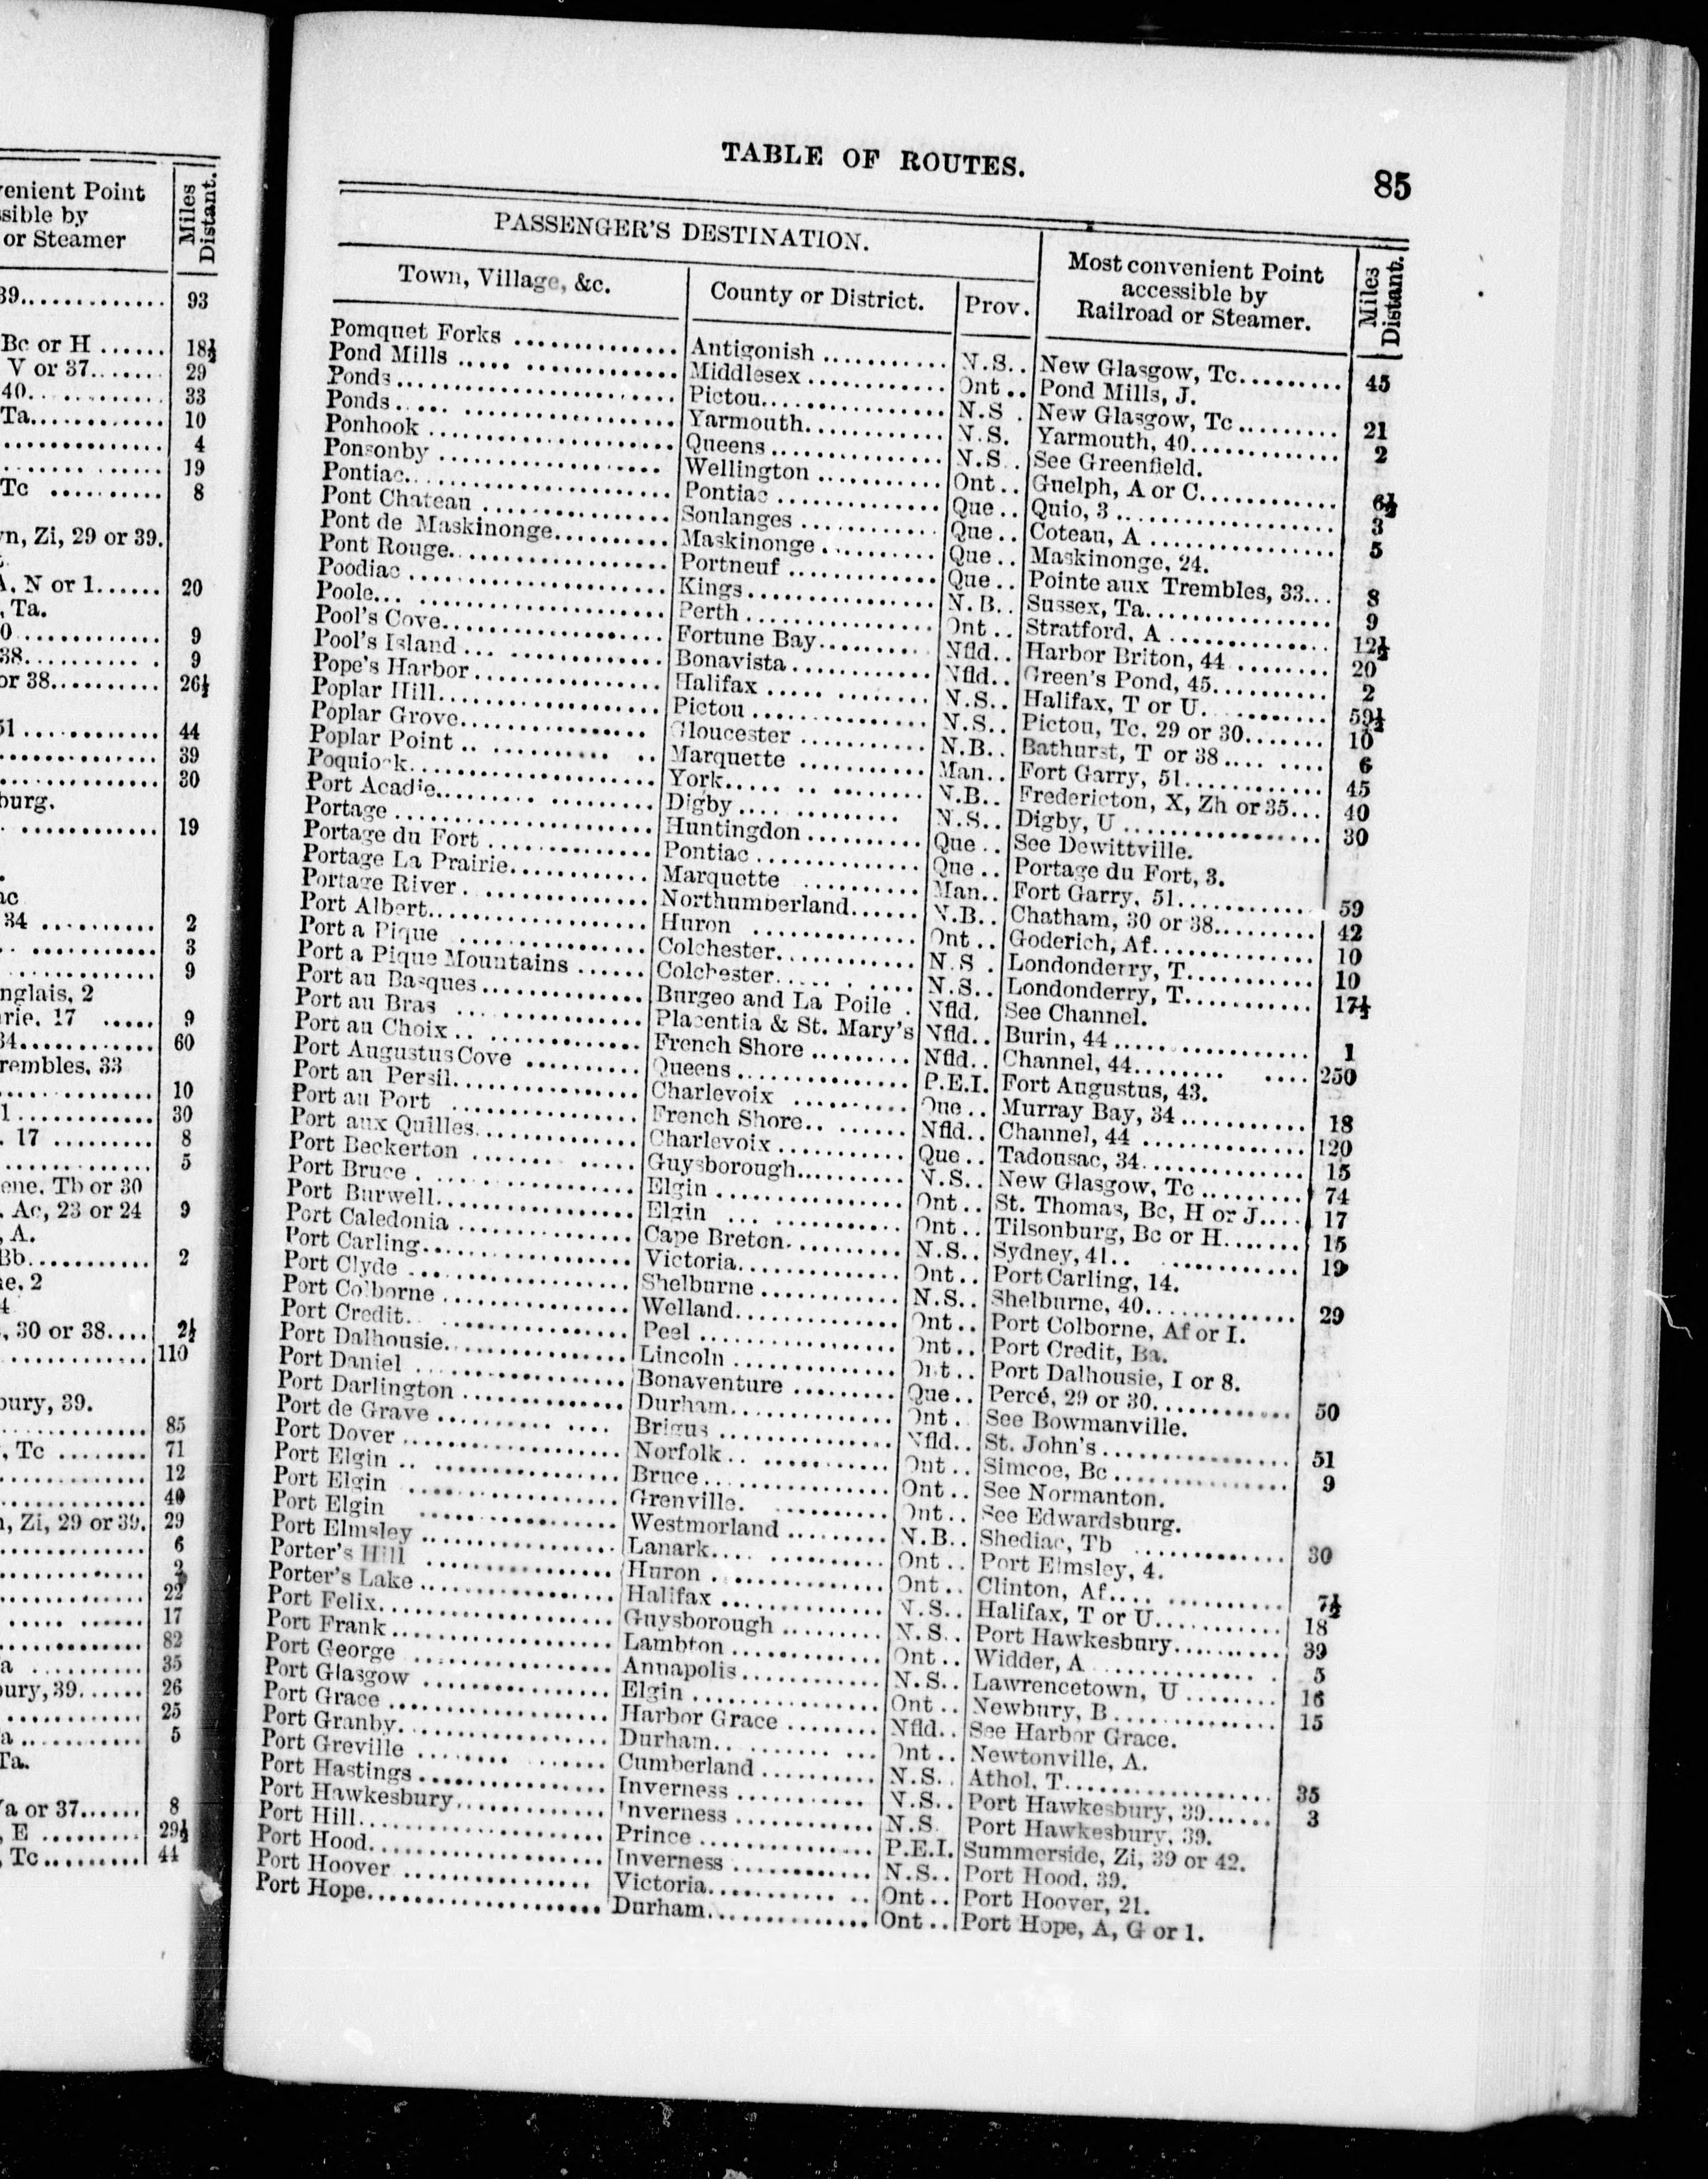 venient Point
ssible by
or Steamer
Miles Distant.
39............. 93
Bc or H ...... 18½
V or 37....... 29
40............ 33
Ta............ 10
4
19
Tc .......... 8
n, Zi, 29 or 39.
A, N or 1...... 20
, Ta.
0............. 9
38............ 9
or 38.......... 26½
51 ............ 44
39
30
burg.
19
ac
34 .......... 2
3
9
nglais, 2
rie, 17 ..... 9
34............ 60
rembles, 33
10
1 ............ 30
. 17 ......... 8
5
ene, Tb or 30
. Ac, 23 or 24 9
, A.
Bb........... 2
ne, 2
4
, 30 or 38.... 2½
110
bury, 39.
85
, Tc ........ 71
12
40
n, Zi, 29 or 39. 29
6
2
22
17
82
a .......... 35
bury, 39...... 26
25
a .......... 5
Ta.
Va or 37...... 8
, E ......... 29½
, Tc.......... 44
TABLE OF ROUTES. 85
PASSENGER'S DESTINATION. Most convenient Point accessible by Railroad or Steamer. Miles Distant.
Town, Village, &c. County or District. Prov.
Pomquet Forks .... Antigonish .... N.S.. New Glasgow, Tc.... 45
Pond Mills .... Middlesex .... Ont.. Pond Mills, J.
Ponds .... Pictou .... N.S . New Glasgow, Tc .... 21
Ponds .... Yarmouth .... N.S. Yarmouth, 40 .... 2
Ponhook .... Queens .... N.S.. See Greenfield.
Ponsonby .... Wellington .... Ont.. Guelph, A or C .... 6½
Pontiac .... Pontiac .... Que.. Quio, 3 .... 3
Pont Chateau .... Soulanges .... Que.. Coteau, A .... 5
Pont de Maskinonge .... Maskinonge .... Que.. Maskinonge, 24.
Pont Rouge .... Portneuf .... Que.. Pointe aux Trembles, 33... 8
Poodiac .... Kings .... N.B.. Sussex, Ta .... 9
Poole .... Perth .... Ont.. Stratford, A .... 12½
Pool's Cove .... Fortune Bay .... Nfld.. Harbor Briton, 44 .... 20
Pool's Island .... Bonavista .... Nfld.. Green's Pond, 45 .... 2
Pope's Harbor .... Halifax .... N.S.. Halifax, T or U .... 59½
Poplar Hill .... Pictou .... N.S.. Pictou, Tc, 29 or 30 .... 10
Poplar Grove .... Gloucester .... N.B.. Bathurst, T or 38 .... 6
Poplar Point .... Marquette .... Man.. Fort Garry, 51 .... 45
Poquiock .... York .... N.B.. Fredericton, X, Zh or 35... 40
Port Acadie .... Digby .... N.S.. Digby, U .... 30
Portage .... Huntingdon .... Que.. See Dewittville.
Portage du Fort .... Pontiac .... Que.. Portage du Fort, 3.
Portage La Prairie .... Marquette .... Man.. Fort Garry, 51 .... 59
Portage River .... Northumberland .... N.B.. Chatham, 30 or 38 .... 42
Port Albert .... Huron .... Ont.. Goderich, Af .... 10
Port a Pique .... Colchester .... N.S . Londonderry, T .... 10
Port a Pique Mountains .... Colchester .... N.S.. Londonderry, T .... 17½
Port au Basques .... Burgeo and La Poile . Nfld. See Channel.
Port au Bras .... Placentia & St. Mary's Nfld.. Burin, 44 .... 1
Port au Choix .... French Shore .... Nfld.. Channel, 44 .... 250
Port Augustus Cove .... Queens .... P.E.I. Fort Augustus, 43.
Port au Persil .... Charlevoix .... Que.. Murray Bay, 34 .... 18
Port au Port .... French Shore .... Nfld.. Channel, 44 .... 120
Port aux Quilles .... Charlevoix .... Que.. Tadousac, 34 .... 15
Port Beckerton .... Guysborough .... N.S.. New Glasgow, Tc .... 74
Port Bruce .... Elgin .... Ont.. St. Thomas, Bc, H or J .... 17
Port Burwell .... Elgin .... Ont.. Tilsonburg, Bc or H .... 15
Port Caledonia .... Cape Breton .... N.S.. Sydney, 41 .... 19
Port Carling .... Victoria .... Ont.. Port Carling, 14.
Port Clyde .... Shelburne .... N.S.. Shelburne, 40 .... 29
Port Colborne .... Welland .... Ont.. Port Colborne, Af or I.
Port Credit .... Peel .... Ont.. Port Credit, Ba.
Port Dalhousie .... Lincoln .... Ont.. Port Dalhousie, I or 8.
Port Daniel .... Bonaventure .... Que.. Percé, 29 or 30 .... 50
Port Darlington .... Durham .... Ont. See Bowmanville.
Port de Grave .... Brigus .... Nfld.. St. John's .... 51
Port Dover .... Norfolk .... Ont.. Simcoe, Bc .... 9
Port Elgin .... Bruce .... Ont.. See Normanton.
Port Elgin .... Grenville .... Ont.. See Edwardsburg.
Port Elgin .... Westmorland .... N.B.. Shediac, Tb .... 30
Port Elmsley .... Lanark .... Ont.. Port Elmsley, 4.
Porter's Hill .... Huron .... Ont.. Clinton, Af .... 7½
Porter's Lake .... Halifax .... N.S.. Halifax, T or U .... 18
Port Felix .... Guysborough .... N.S.. Port Hawkesbury .... 39
Port Frank .... Lambton .... Ont.. Widder, A .... 5
Port George .... Annapolis .... N.S.. Lawrencetown, U .... 16
Port Glasgow .... Elgin .... Ont.. Newbury, B .... 15
Port Grace .... Harbor Grace .... Nfld.. See Harbor Grace.
Port Granby .... Durham .... Ont.. Newtonville, A.
Port Greville .... Cumberland .... N.S.. Athol, T .... 35
Port Hastings .... Inverness .... N.S.. Port Hawkesbury, 39 .... 3
Port Hawkesbury .... Inverness .... N.S. Port Hawkesbury, 39.
Port Hill .... Prince .... P.E.I. Summerside, Zi, 39 or 42.
Port Hood .... Inverness .... N.S.. Port Hood, 39.
Port Hoover .... Victoria .... Ont.. Port Hoover, 21.
Port Hope .... Durham .... Ont.. Port Hope, A, G or 1.